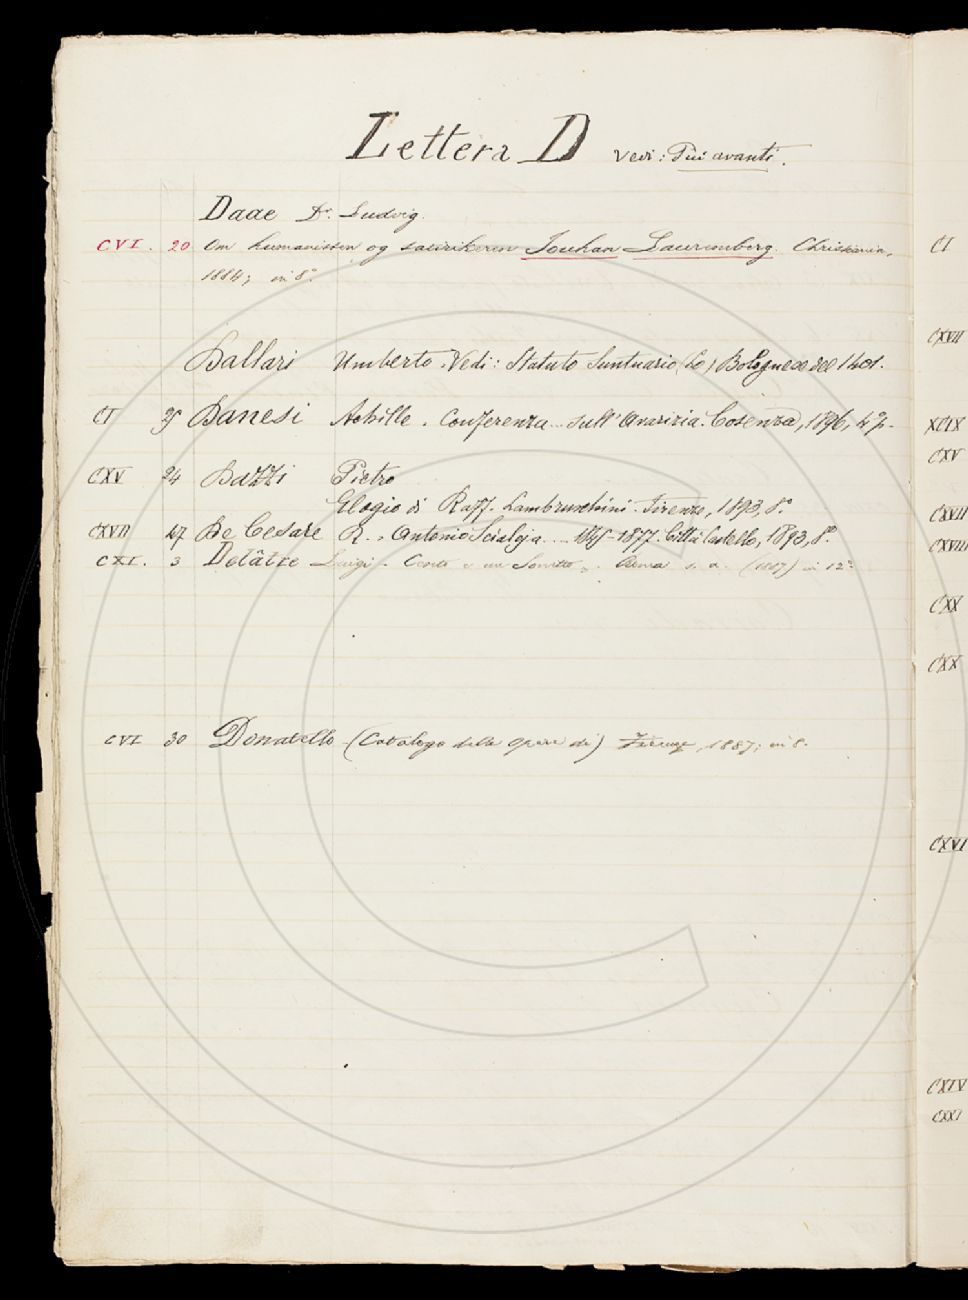 Lettera D Vedi: Più avanti.
Daae Dr. Ludvig.
CVI. 20 Om humanisten og satirikeren Jouhan Lauremberg. Christiania,
1884; in 8°
Dallari Umberto. Vedi: Statuto Suntuario (Lo) Bolognese del 1401.
CI Danesi Achille. Conferenza sull'Avarizia. Cosenza, 1896, 4°.
CXV 24 Dazzi Pietro
Elogio di Raff. Lambruschini. Firenze, 1893, 8°
CXVII 47 De Cesare R. Antonio Scialoja 1877. Città Castello, 1893, 8°.
CXI. 3 Delâtre Luigi - Cento e un Sonetto. Roma s. a. (1887) in 12°
CVI 30 Donatello (Catalogo delle opere di) Firenze, 1887; in 8.
CI
CXVII
XCIX
CXV
CXVII
CXVIII
CXX
CXX
CXVI
CXIV
CXXI